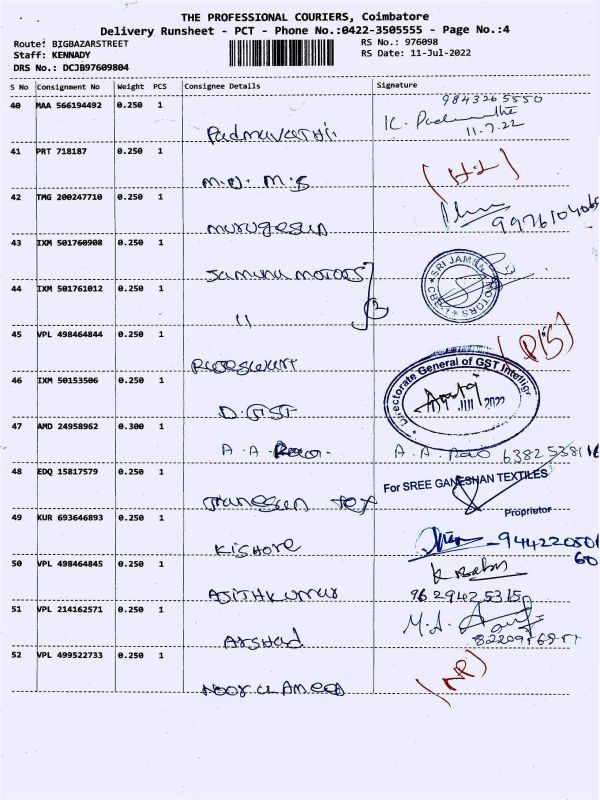 THE PROFESSIONAL COURIERS, Coimbatore
Delivery Runsheet - PCT - Phone No.:0422-3505555 - Page No.:4
Route: BIGBAZARSTREET RS No.: 976098
Staff: KENNADY RS Date: 11-Jul-2022
DRS No.: DCJB97609804
S No Consignment No Weight PCS Consignee Details Signature
40 MAA 566194492 0.250 1 9843265550
Padmavathi K.
11.7.22
41 PRT 718187 0.250 1
M.D. M.S
42 TMG 200247710 0.250 1
murugesun
43 IXM 501760908 0.250 1
Jamuna motors SRI JAMUNA MOTORS CBE-1
44 IXM 501761012 0.250 1
11
45 VPL 498464844 0.250 1
46 IXM 50153506 0.250 1 Directorate General of GST Intellige
D.GST JUL 2022
47 AMD 24958962 0.300 1
A.A. Rao A.A. Rao 6382538116
48 EDQ 15817579 0.250 1 For SREE GANESHAN TEXTILES
Ganesan Tex Proprietor
49 KUR 693646893 0.250 1
Kishore
50 VPL 498464845 0.250 1 K
Ajithkumar 9629425315
51 VPL 214162571 0.250 1 M.A.
Arshad
52 VPL 499522733 0.250 1
Noor ul Ameed (NP)